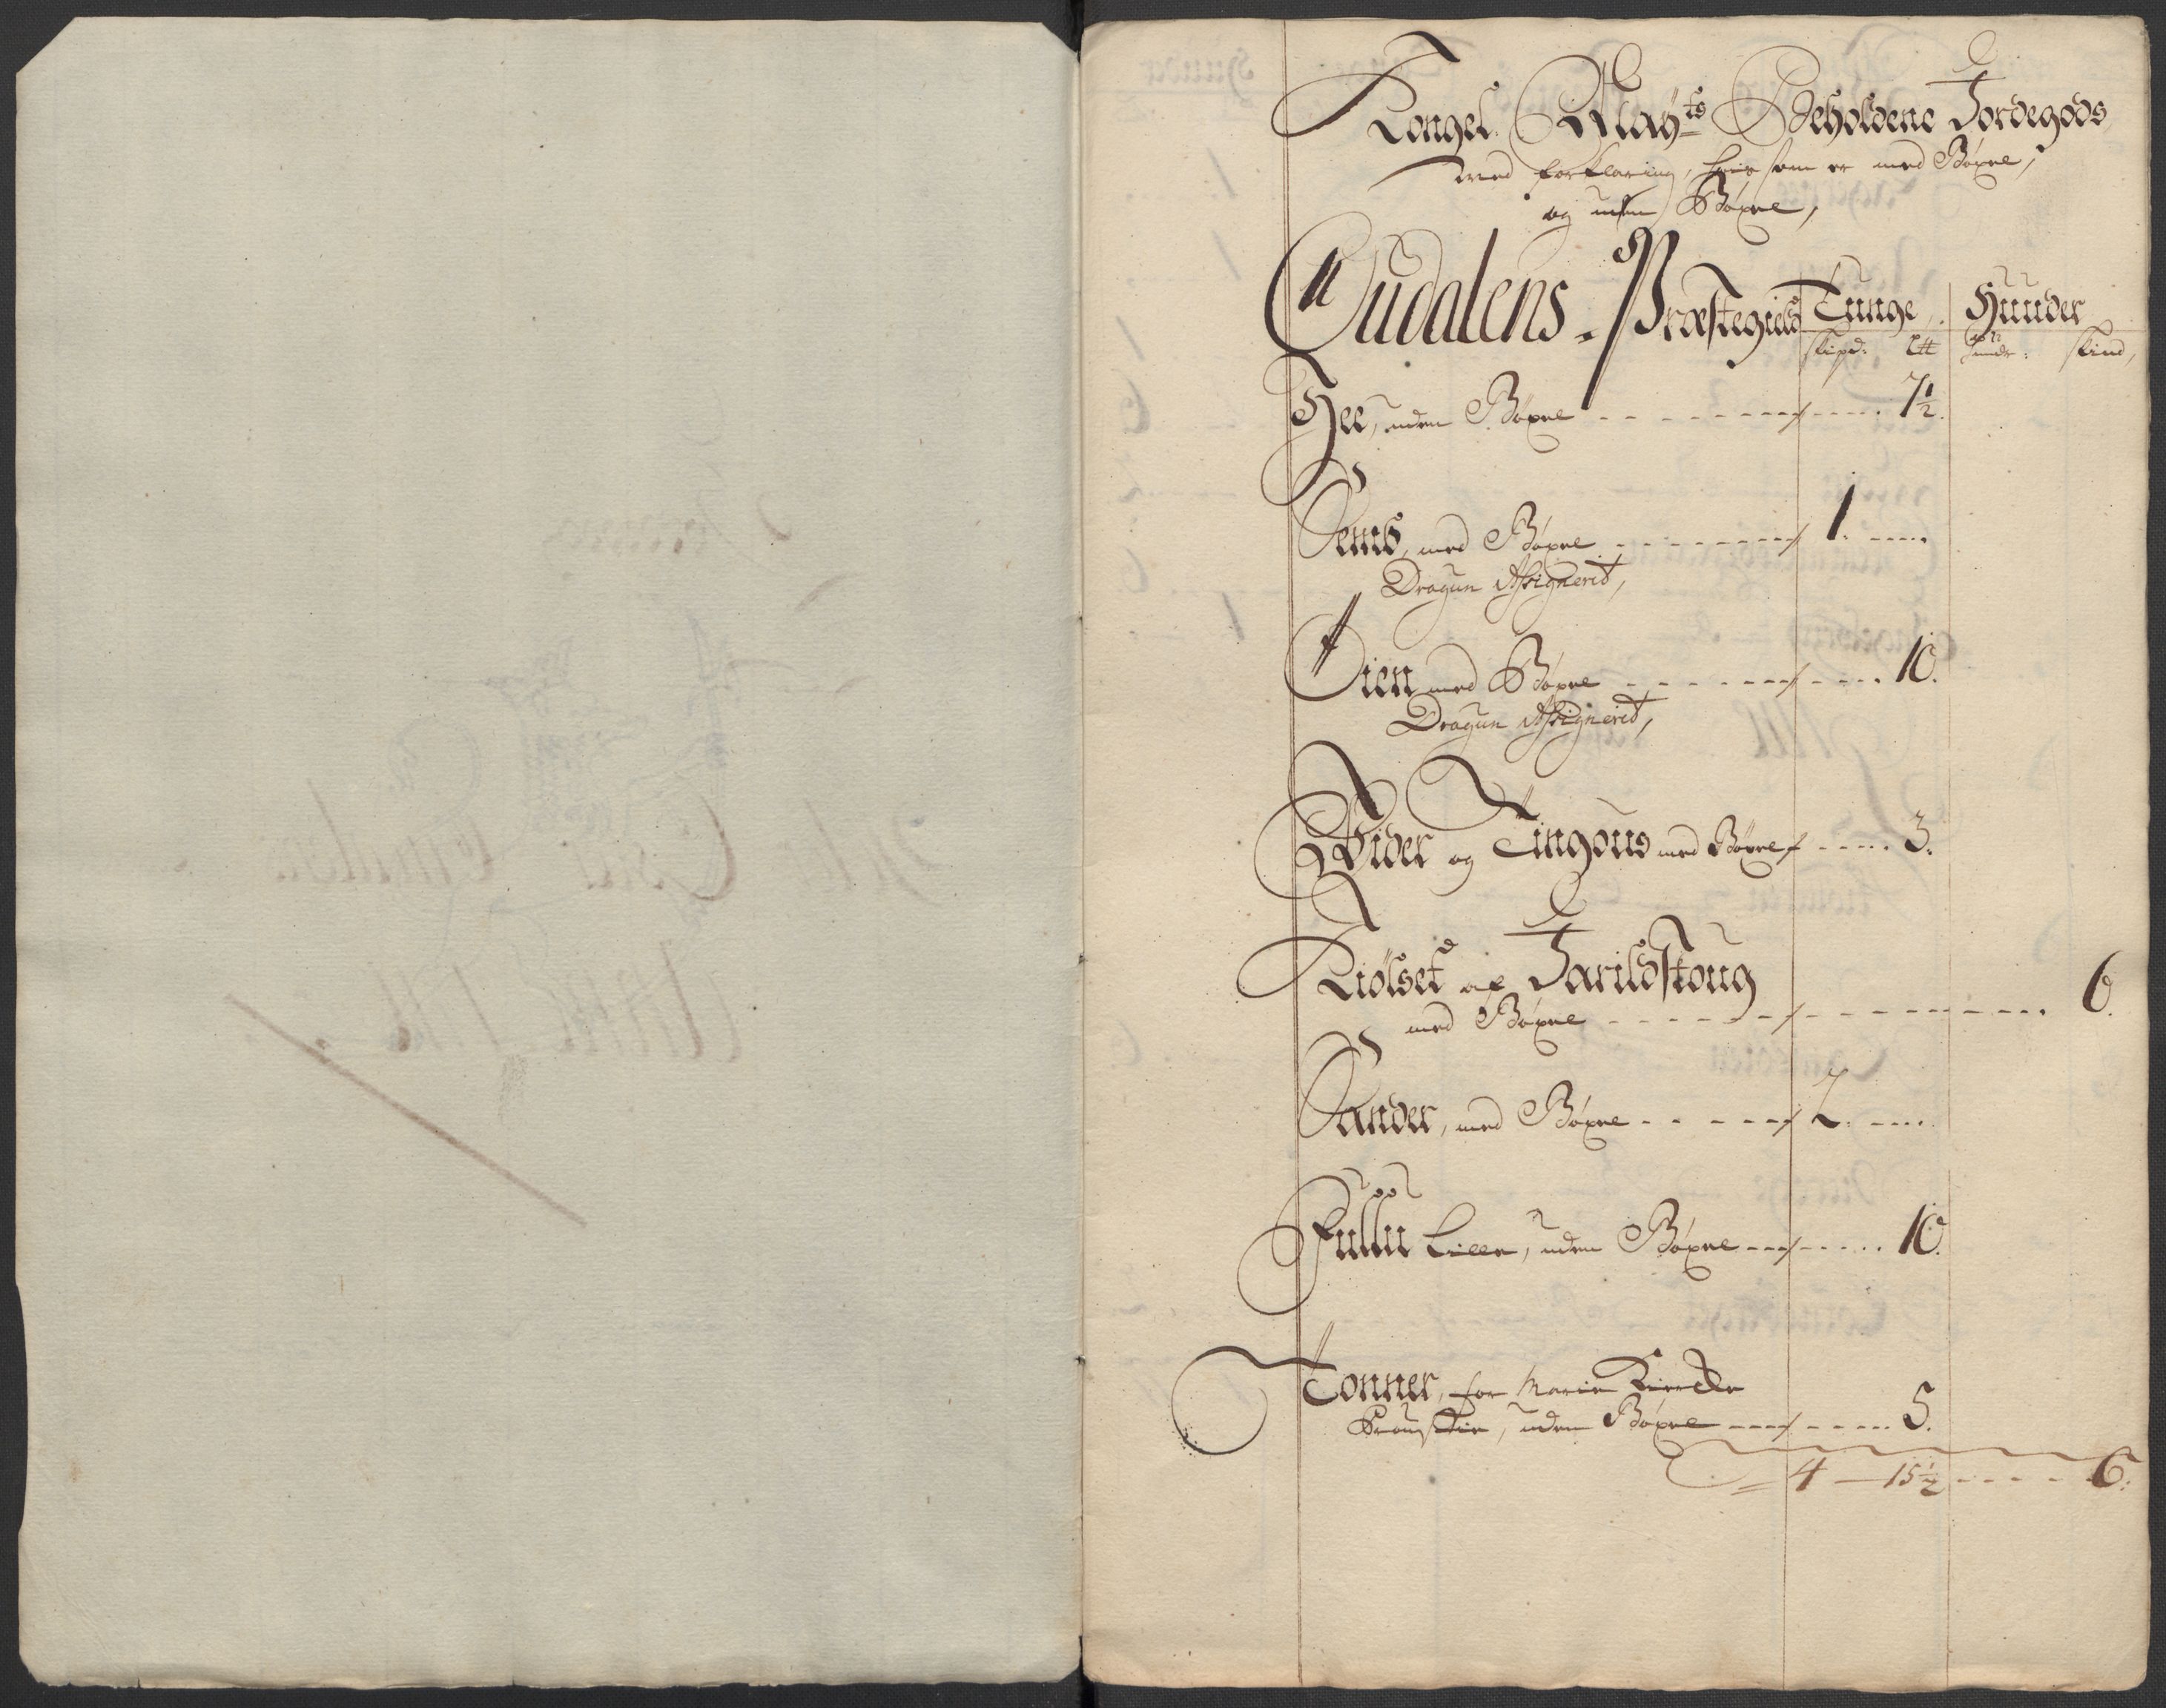 Kongel: May:ts Beholdene Jordegods
med forklaring, huis som er med Böxel,
og uden Böxel,
Oudalens Præstegield Tunge, Huuder
skipd: L℔ huuder: skind,
Hee, uden Böxel - - - - 7½.
Semb, med Böxel - - - - 1. - - -
Dragun Assignerid,
Öien med Böxel - - - - 10.
Dragun Assignerid,
og Tingous med Böxel - - - - 3.
Kiölset af Jarildstoug
med Böxel - - - - 6.
Sander, med Böxel - - - - 2. - - -
Fullu Lille, uden Böxel - - - - 10.
Tonner, for Marie Kiercke
uden Böxel - - - - 5.
= 4 — 15½ - - - - 6: